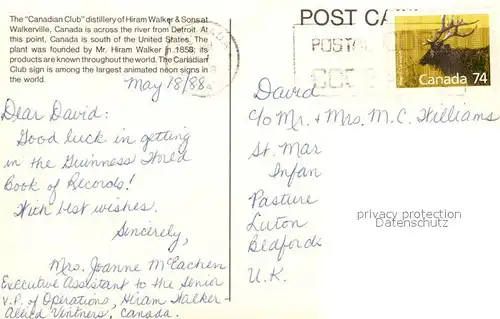 The "Canadian Club" distillery of Hiram Walker & Sons at
Walkerville, Canada is across the river from Detroit. At
this point, Canada is south of the United States. The
plant was founded by Mr. Hiram Walker in 1858; its
products are known throughout the world. The Canadian
Club sign is among the largest animated neon signs in
the world.
POST CA
POSTAL CO
CODE
Canada 74
May 18/88
Dear David:
Good luck in getting
in the Guinness World
Book of Records!
With best wishes.
Sincerely,
Mrs. Joanne McEachen
Executive Assistant to the Senior
V.P. of Operations, Hiram Walker-
Allied Vintners, Canada.
David
c/o Mr. + Mrs. M.C. Williams
St. Mar
Infan
Pasture
Luton
Bedfords
U.K.
privacy protection
Datenschutz